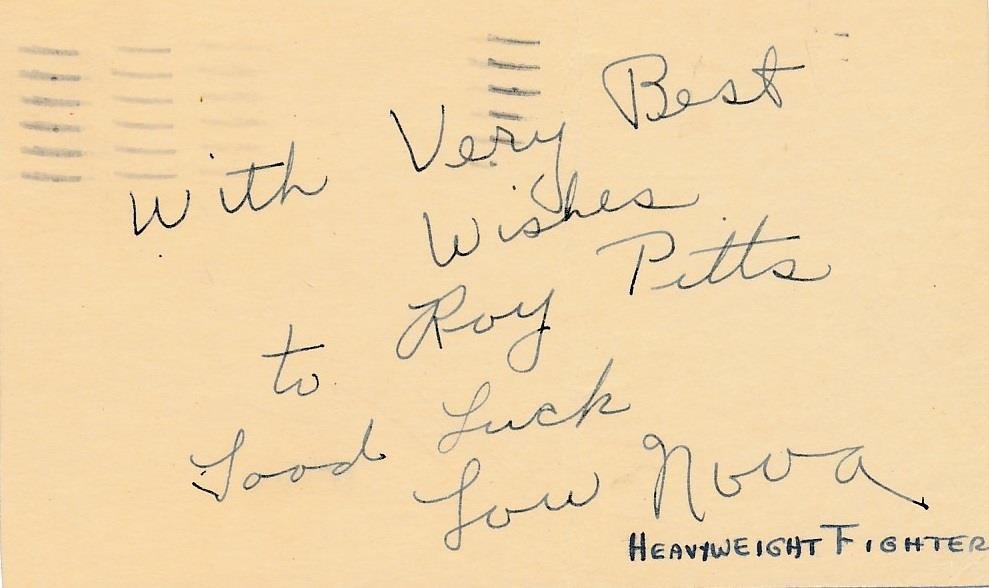 With Very Best
Wishes
to Roy Pitts
Good Luck
Lou Nova
HEAVYWEIGHT FIGHTER